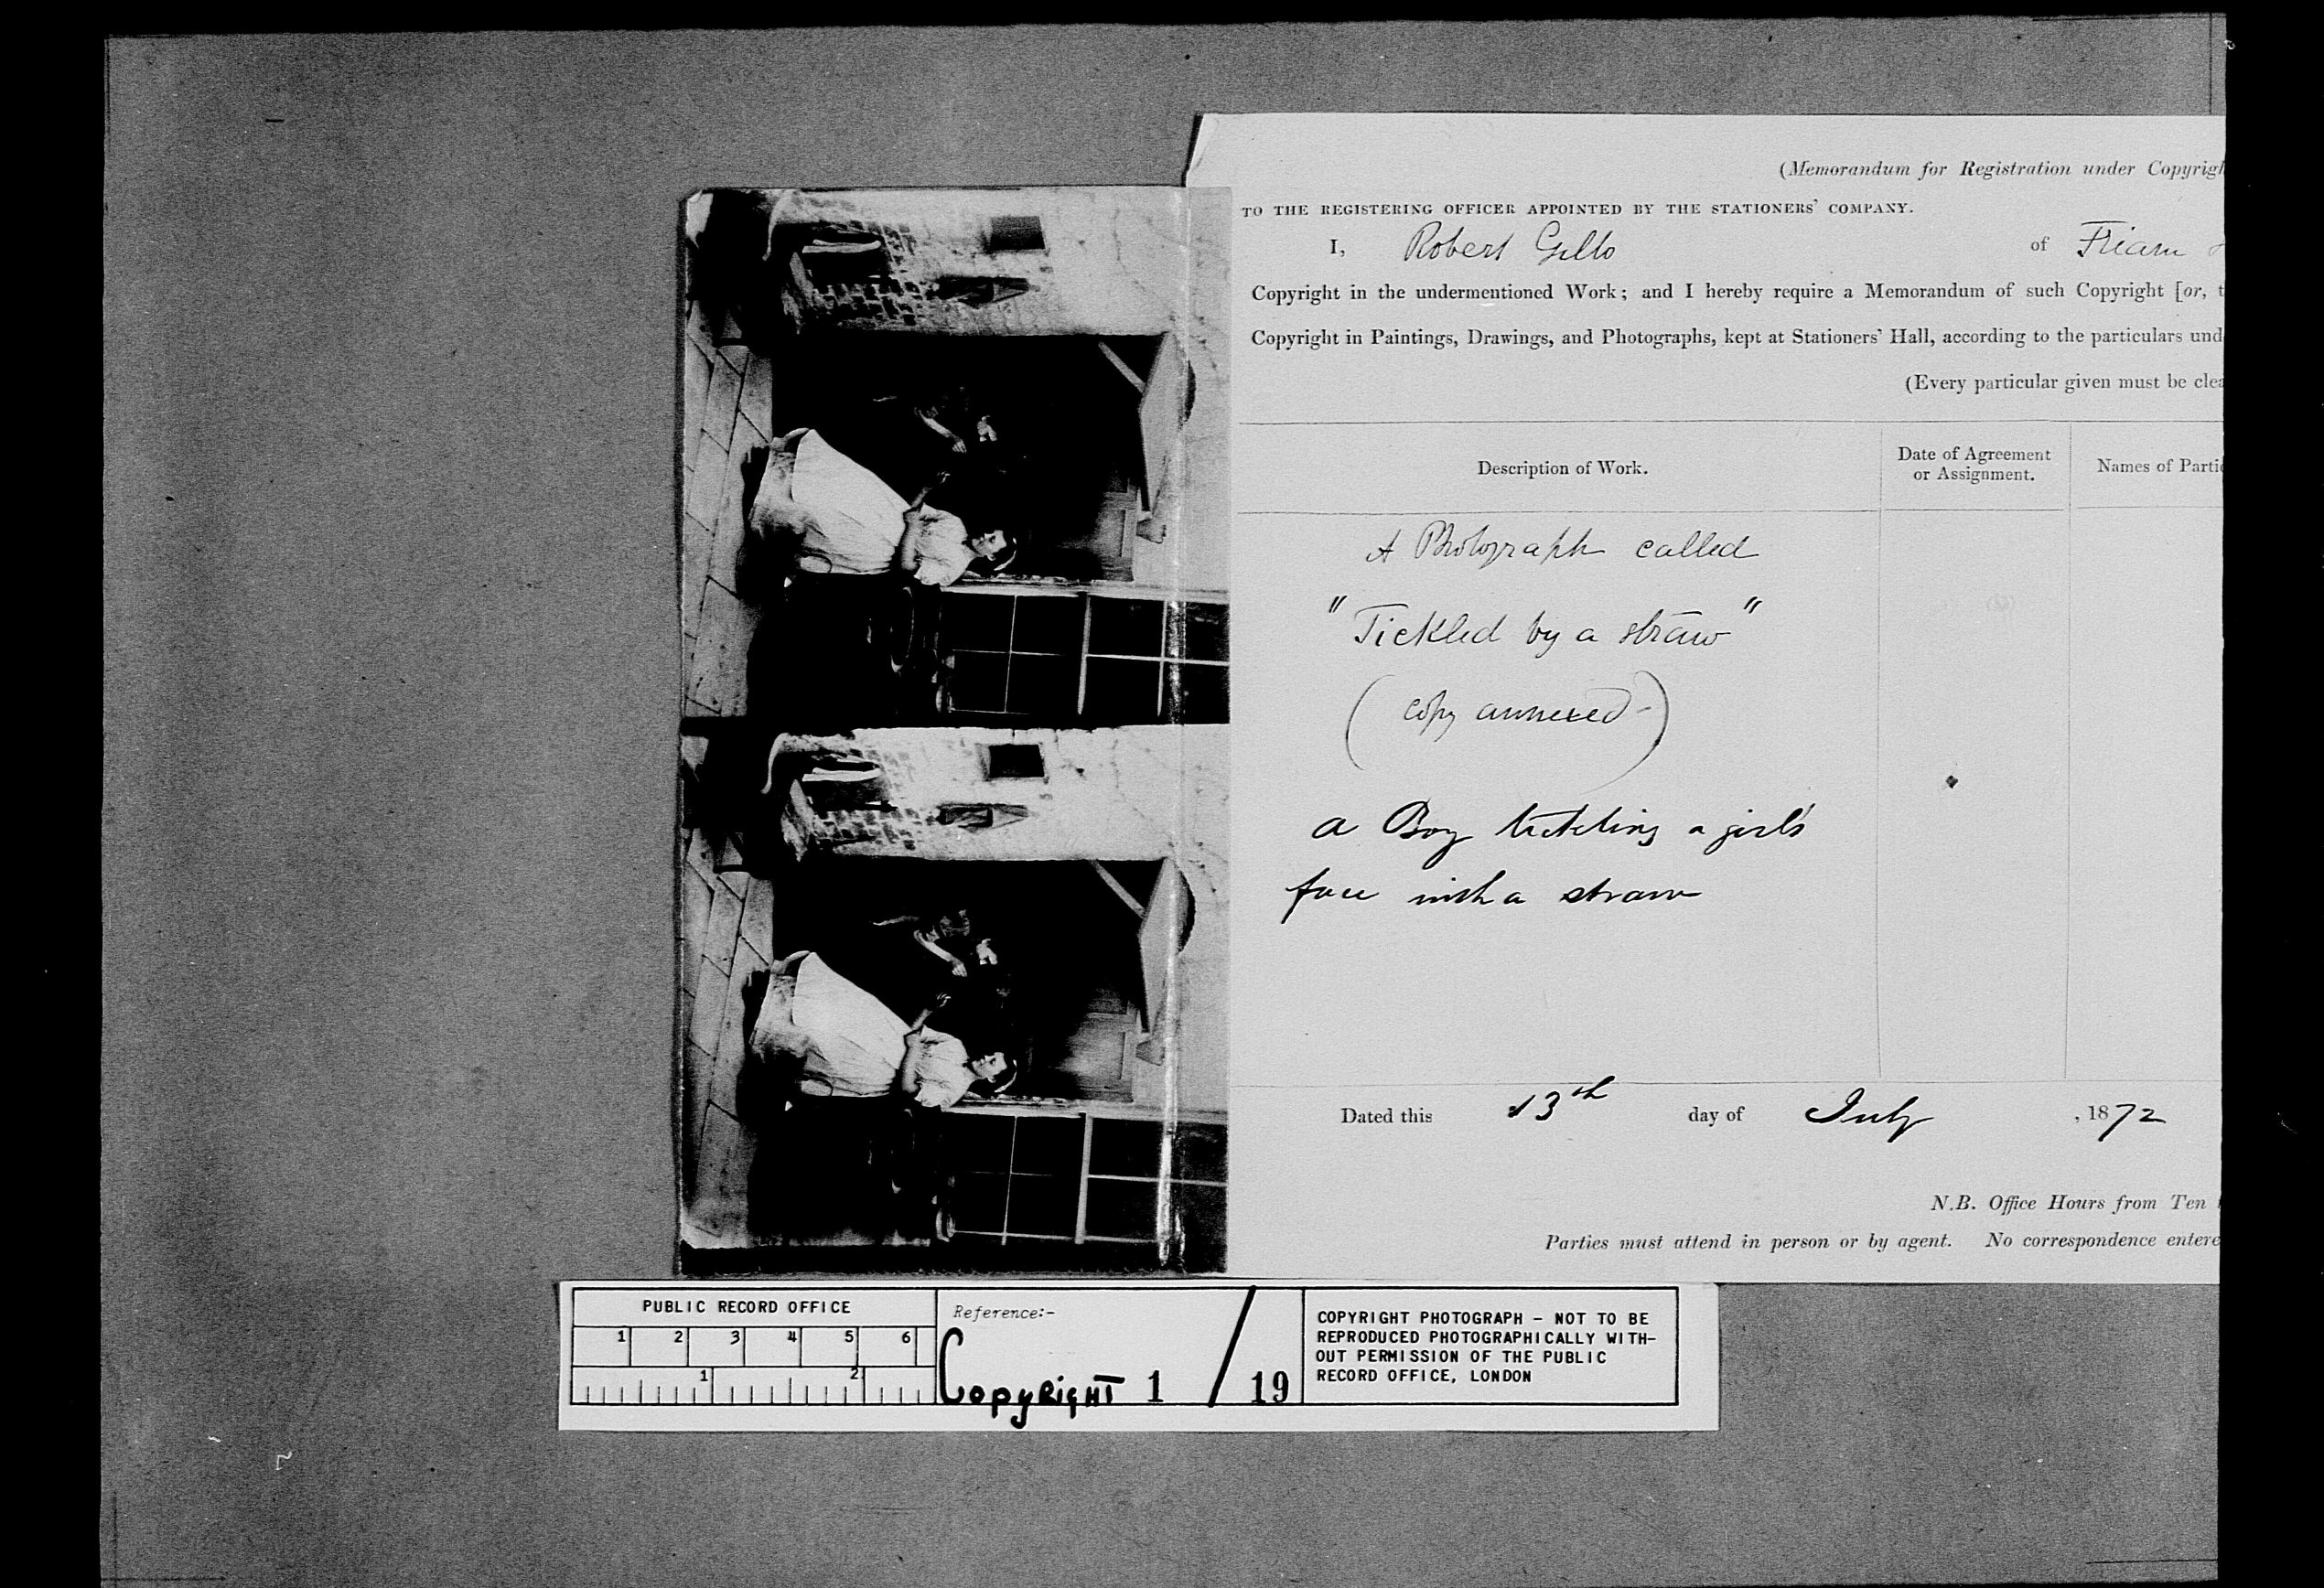 (Memorandum for Registration under Copyrigh
TO THE REGISTERING OFFICER APPOINTED BY THE STATIONERS' COMPANY.
I, Robert Gillo of Friarn
Copyright in the undermentioned Work; and I hereby require a Memorandum of such Copyright [or, t
Copyright in Paintings, Drawings, and Photographs, kept at Stationers' Hall, according to the particulars und
(Every particular given must be clea
Description of Work.
Date of Agreement
or Assignment.
Names of Partie
A Photograph called
"Tickled by a straw"
(copy annexed-)
a Boy tickling a girl's
face with a straw
Dated this 13th day of July, 1872
N.B. Office Hours from Ten
Parties must attend in person or by agent. No correspondence entere
PUBLIC RECORD OFFICE
1 2 3 4 5 6
1 2
Reference:-
COPYRIGHT 1 / 19
COPYRIGHT PHOTOGRAPH - NOT TO BE
REPRODUCED PHOTOGRAPHICALLY WITH-
OUT PERMISSION OF THE PUBLIC
RECORD OFFICE, LONDON